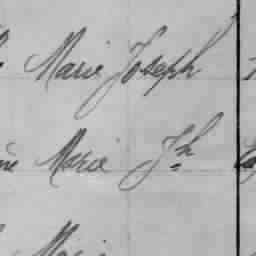 Marie Joseph
Marie Jh
Marie